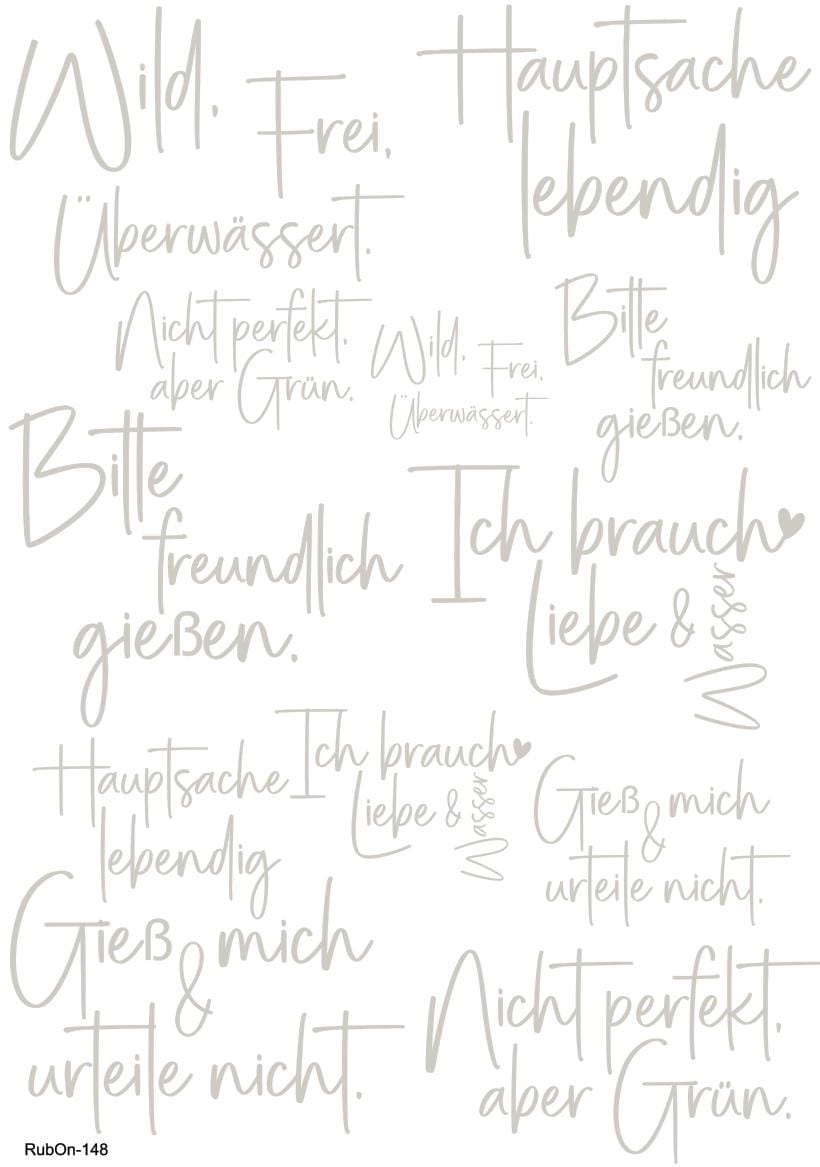 Wild.
Frei.
Überwässert.
Hauptsache
lebendig
Nicht perfekt.
aber Grün.
Wild.
Frei.
Überwässert.
Bitte
freundlich
gießen.
Bitte
freundlich
gießen.
Ich brauch
Liebe &
Wasser
Hauptsache
lebendig
Ich brauch
Liebe &
Wasser
Gieß
&
mich
urteile nicht.
Gieß
&
mich
urteile nicht.
Nicht perfekt.
aber Grün.
RubOn-148